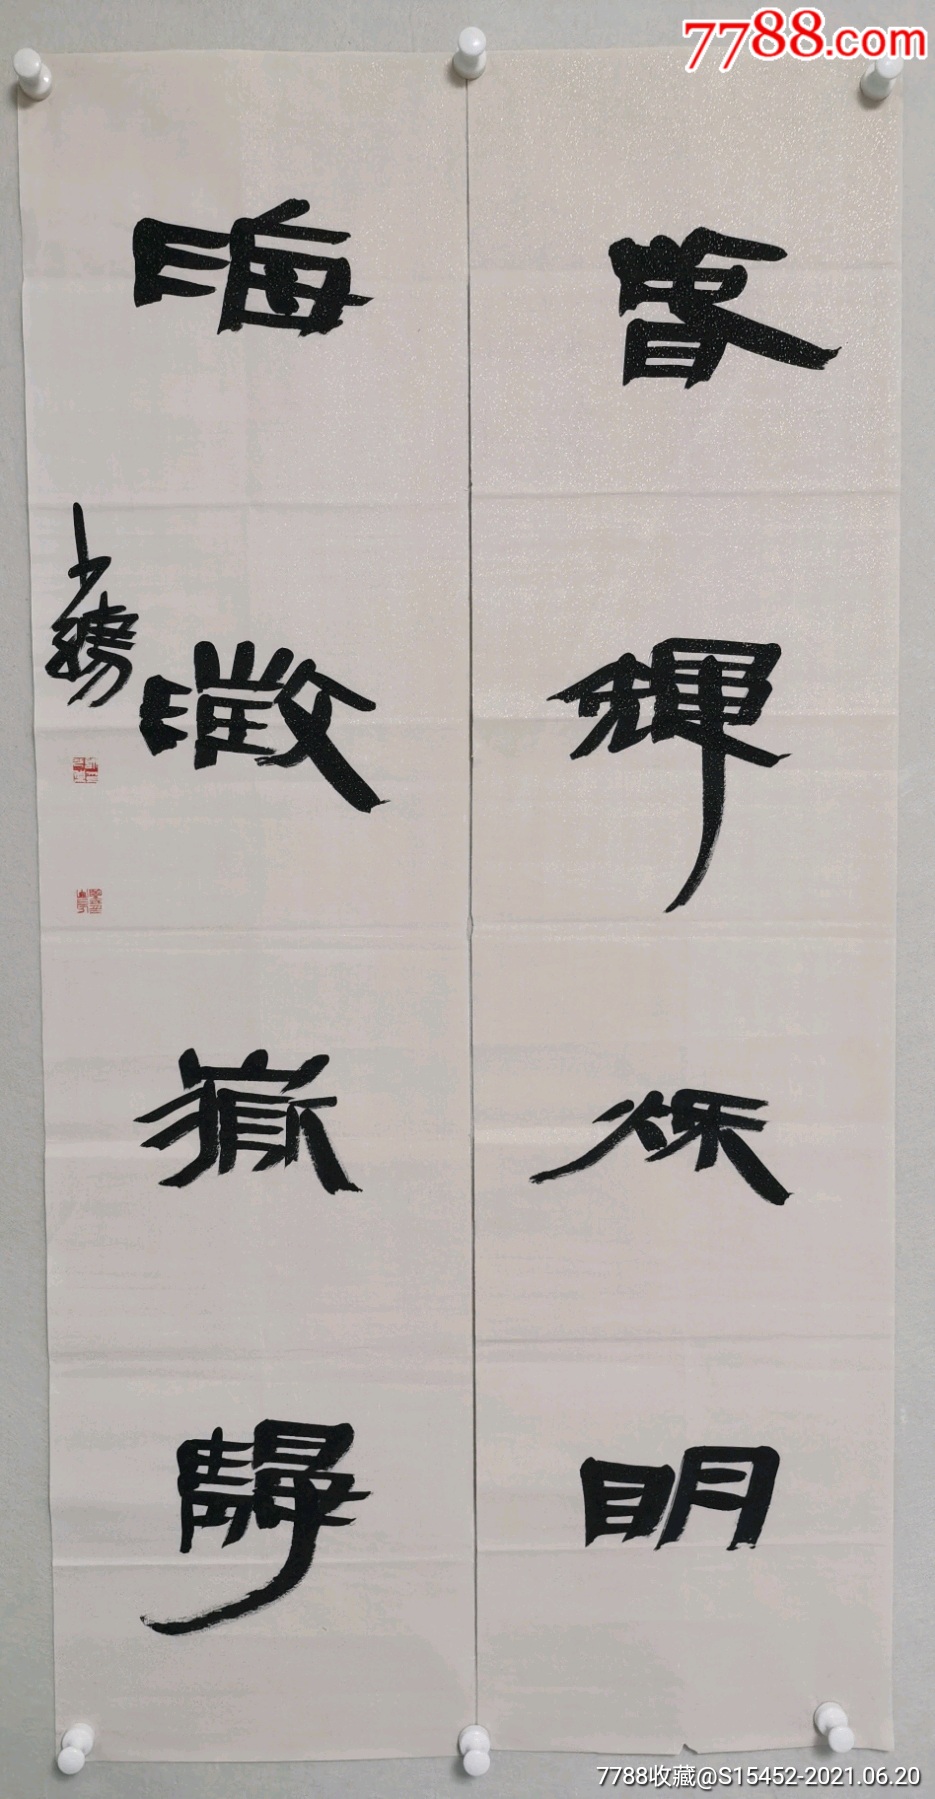 7788.com
春輝秋明
海澂嶽靜
少
7788收藏@S15452-2021.06.20